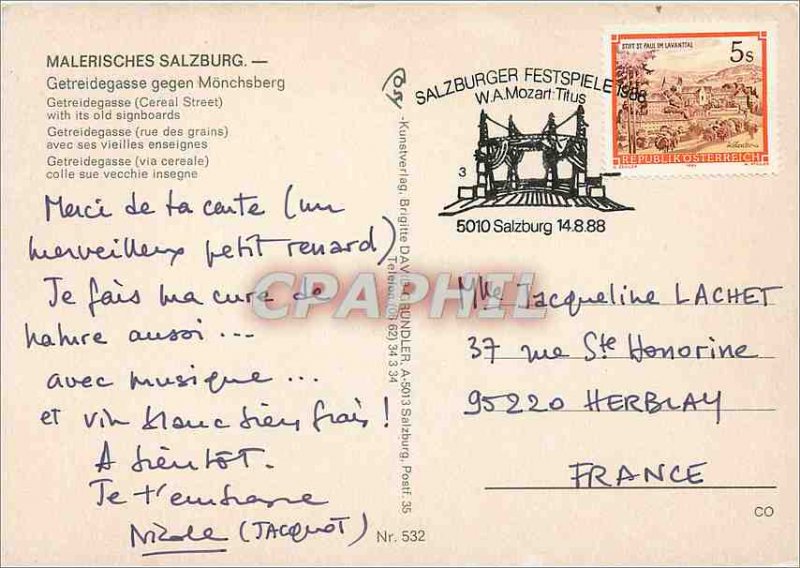 MALERISCHES SALZBURG. —
Getreidegasse gegen Mönchsberg
Getreidegasse (Cereal Street)
with its old signboards
Getreidegasse (rue des grains)
avec ses vieilles enseignes
Getreidegasse (via cereale)
colle sue vecchie insegne
Merci de ta carte (un
merveilleux petit renard)
Je fais ma cure de
nature aussi ...
avec musique ...
et vin blanc bien frais !
A bientôt.
Je t'embrasse
Nicole (JACQUOT)
-Kunstverlag, Brigitte DAVID-GRÜNDLER, A-5013 Salzburg, Postf. 35
Telefon (06 62) 34 3 34
Nr. 532
SALZBURGER FESTSPIELE 1988
W.A.Mozart:Titus
3
5010 Salzburg 14.8.88
STIFT ST. PAUL IM LAVANTTAL
5 S
REPUBLIK ÖSTERREICH
CPAPHIL
Mlle Jacqueline LACHET
37 rue Ste Honorine
95220 HERBLAY
FRANCE
CO